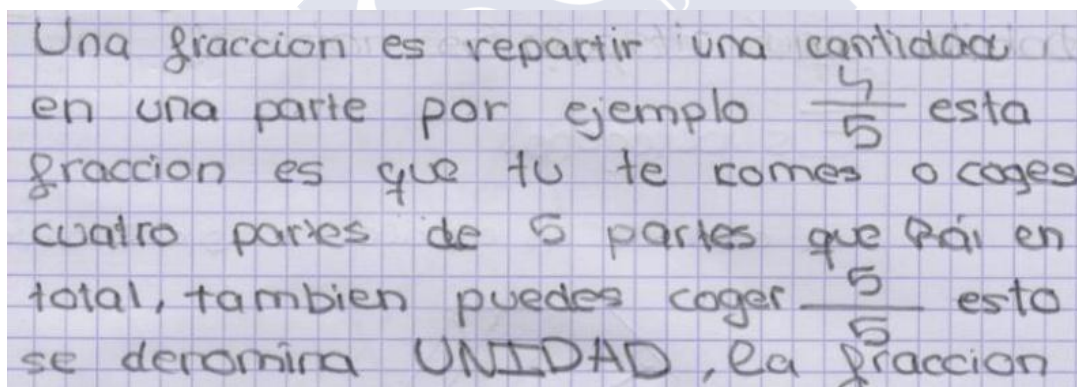 Una fraccion es repartir una cantidad
en una parte por ejemplo 4/5 esta
fraccion es que tu te comes o coges
cuatro partes de 5 partes que hái en
total, tambien puedes coger 5/5 esto
se denomina UNIDAD, la fraccion